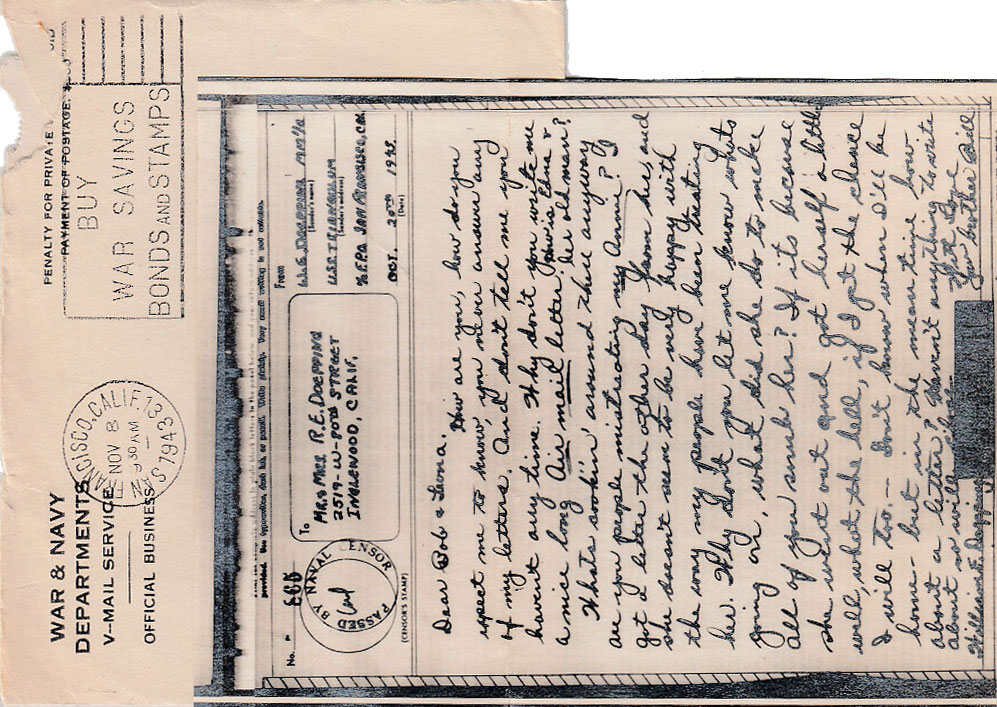 WAR & NAVY
DEPARTMENTS
V-MAIL SERVICE
OFFICIAL BUSINESS
SAN FRANCISCO, CALIF. 13
NOV 8
930 AM
1943
PENALTY FOR PRIVATE
PAYMENT OF POSTAGE,
BUY
WAR SAVINGS
BONDS AND STAMPS
No.
PASSED BY NAVAL CENSOR
(CENSOR'S STAMP)
To
MR & MRS R.E. DOEPPING
2519-W-POTH STREET
INGLEWOOD, CALIF.
From
W.E. DOEPPING
(Sender's name)
U.S.S.
(Sender's address)
% F.P.O. SAN FRANCISCO, CAL.
OCT. 20TH 1943
(Date)
Dear Bob & Leona.
How are you, how do you
expect me to know you never answer any
of my letters. And don't tell me you
havent any time. Why don't you write me
a nice long Air mail letter. How is Edna &
her old man?
Whats cookin' around there anyway
are you people mistreating my Ann? I
got a letter the other day from her, and
she doesn't seem to be very happy with
the way my people have been treating
her. Why don't you let me know whats
going on, what did she do to make
all of you snub her? If its because
she went out and got herself a little
well, what the hell, if I get the chance
I will too. -- I don't know when I'll be
home - but in the meantime how
about a letter? Haven't anything to write
about so will close.
Your brother Bill
William E. Doepping